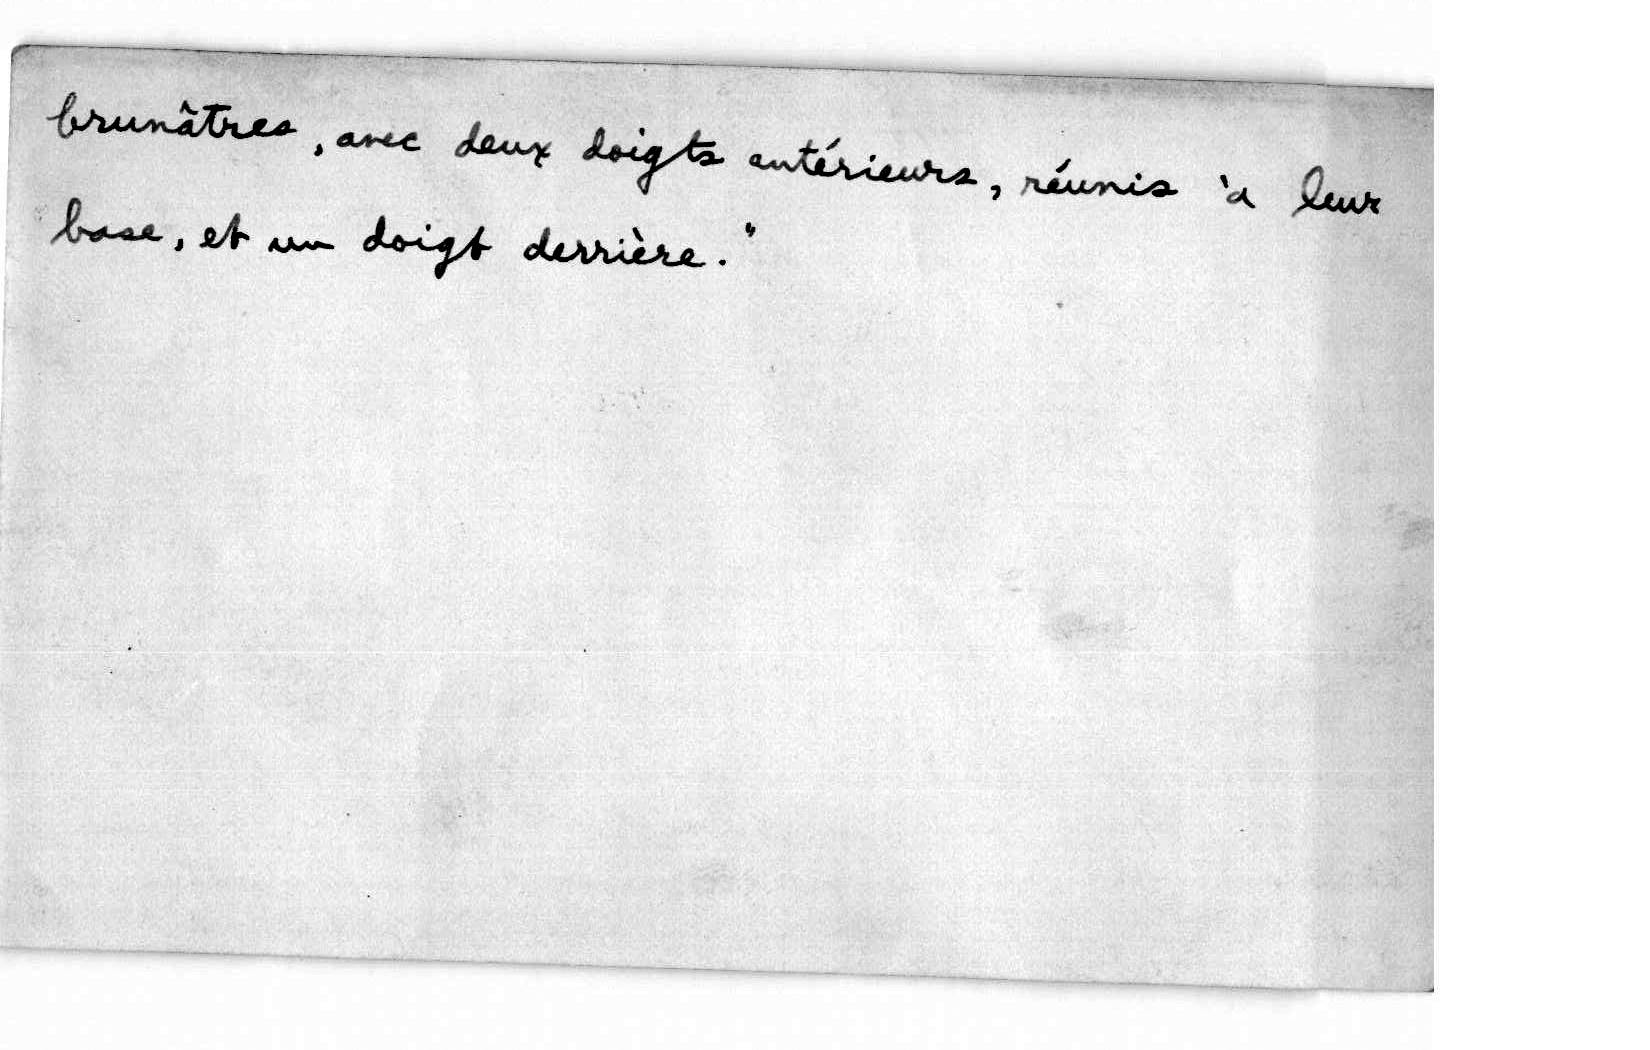 brunâtres, avec deux doigts antérieurs, réunis à leur
base, et un doigt derrière."